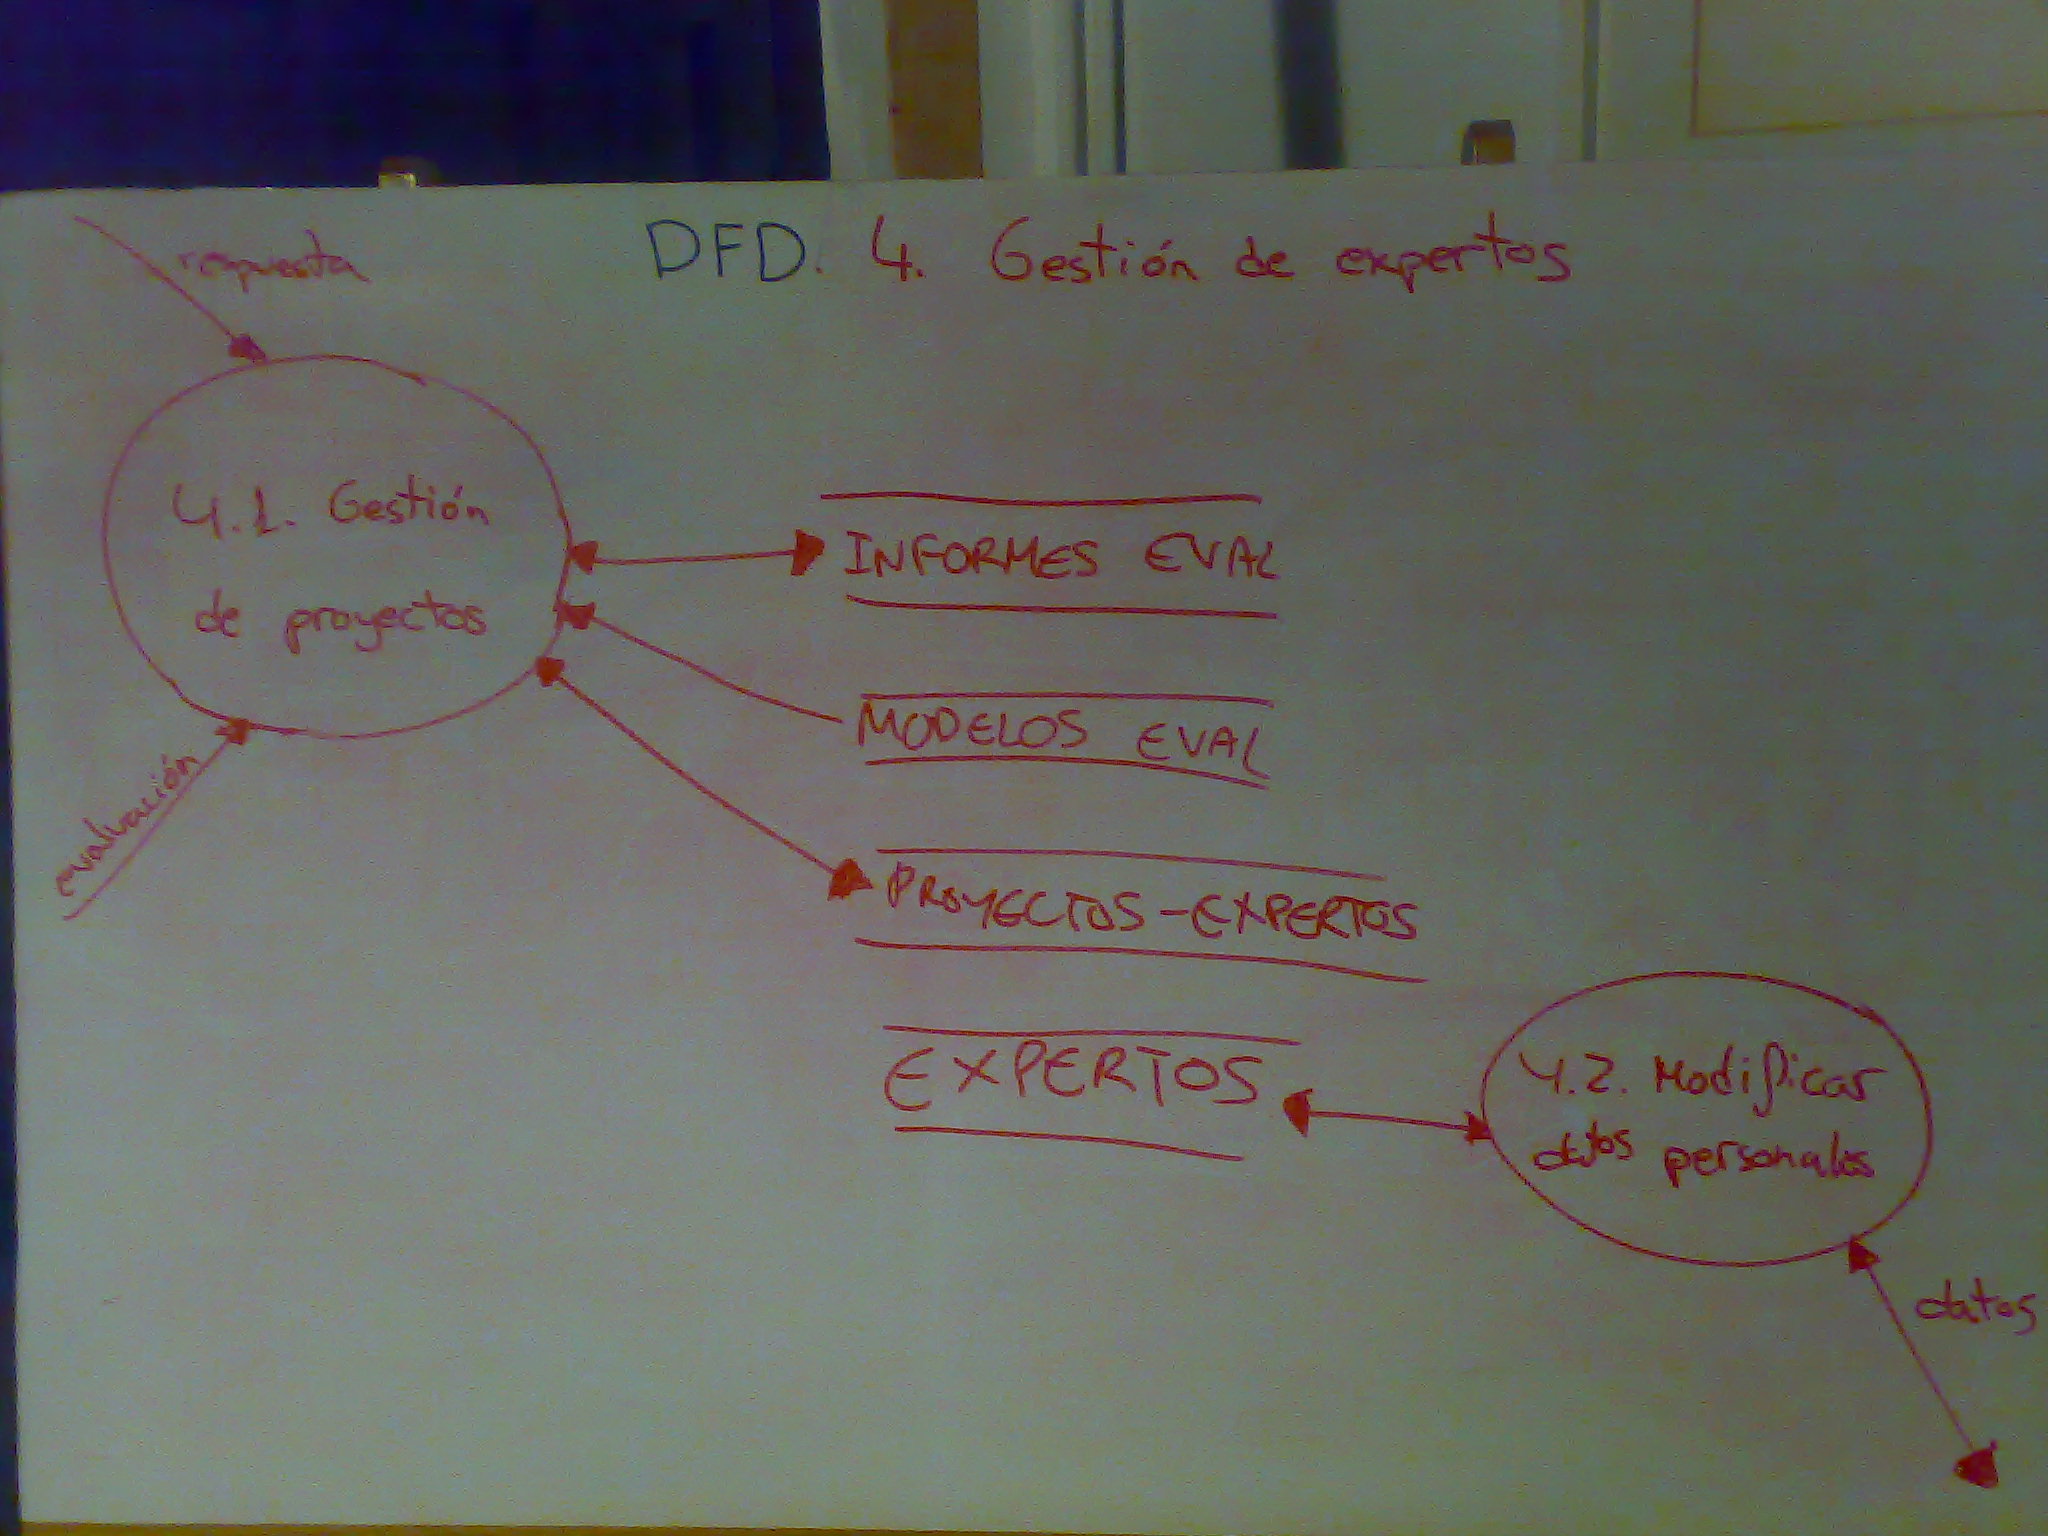 DFD. 4. Gestión de expertos
respuesta
4.1. Gestión
de proyectos
evaluación
INFORMES EVAL
MODELOS EVAL
PROYECTOS-EXPERTOS
EXPERTOS
4.2. Modificar
datos personales
datos